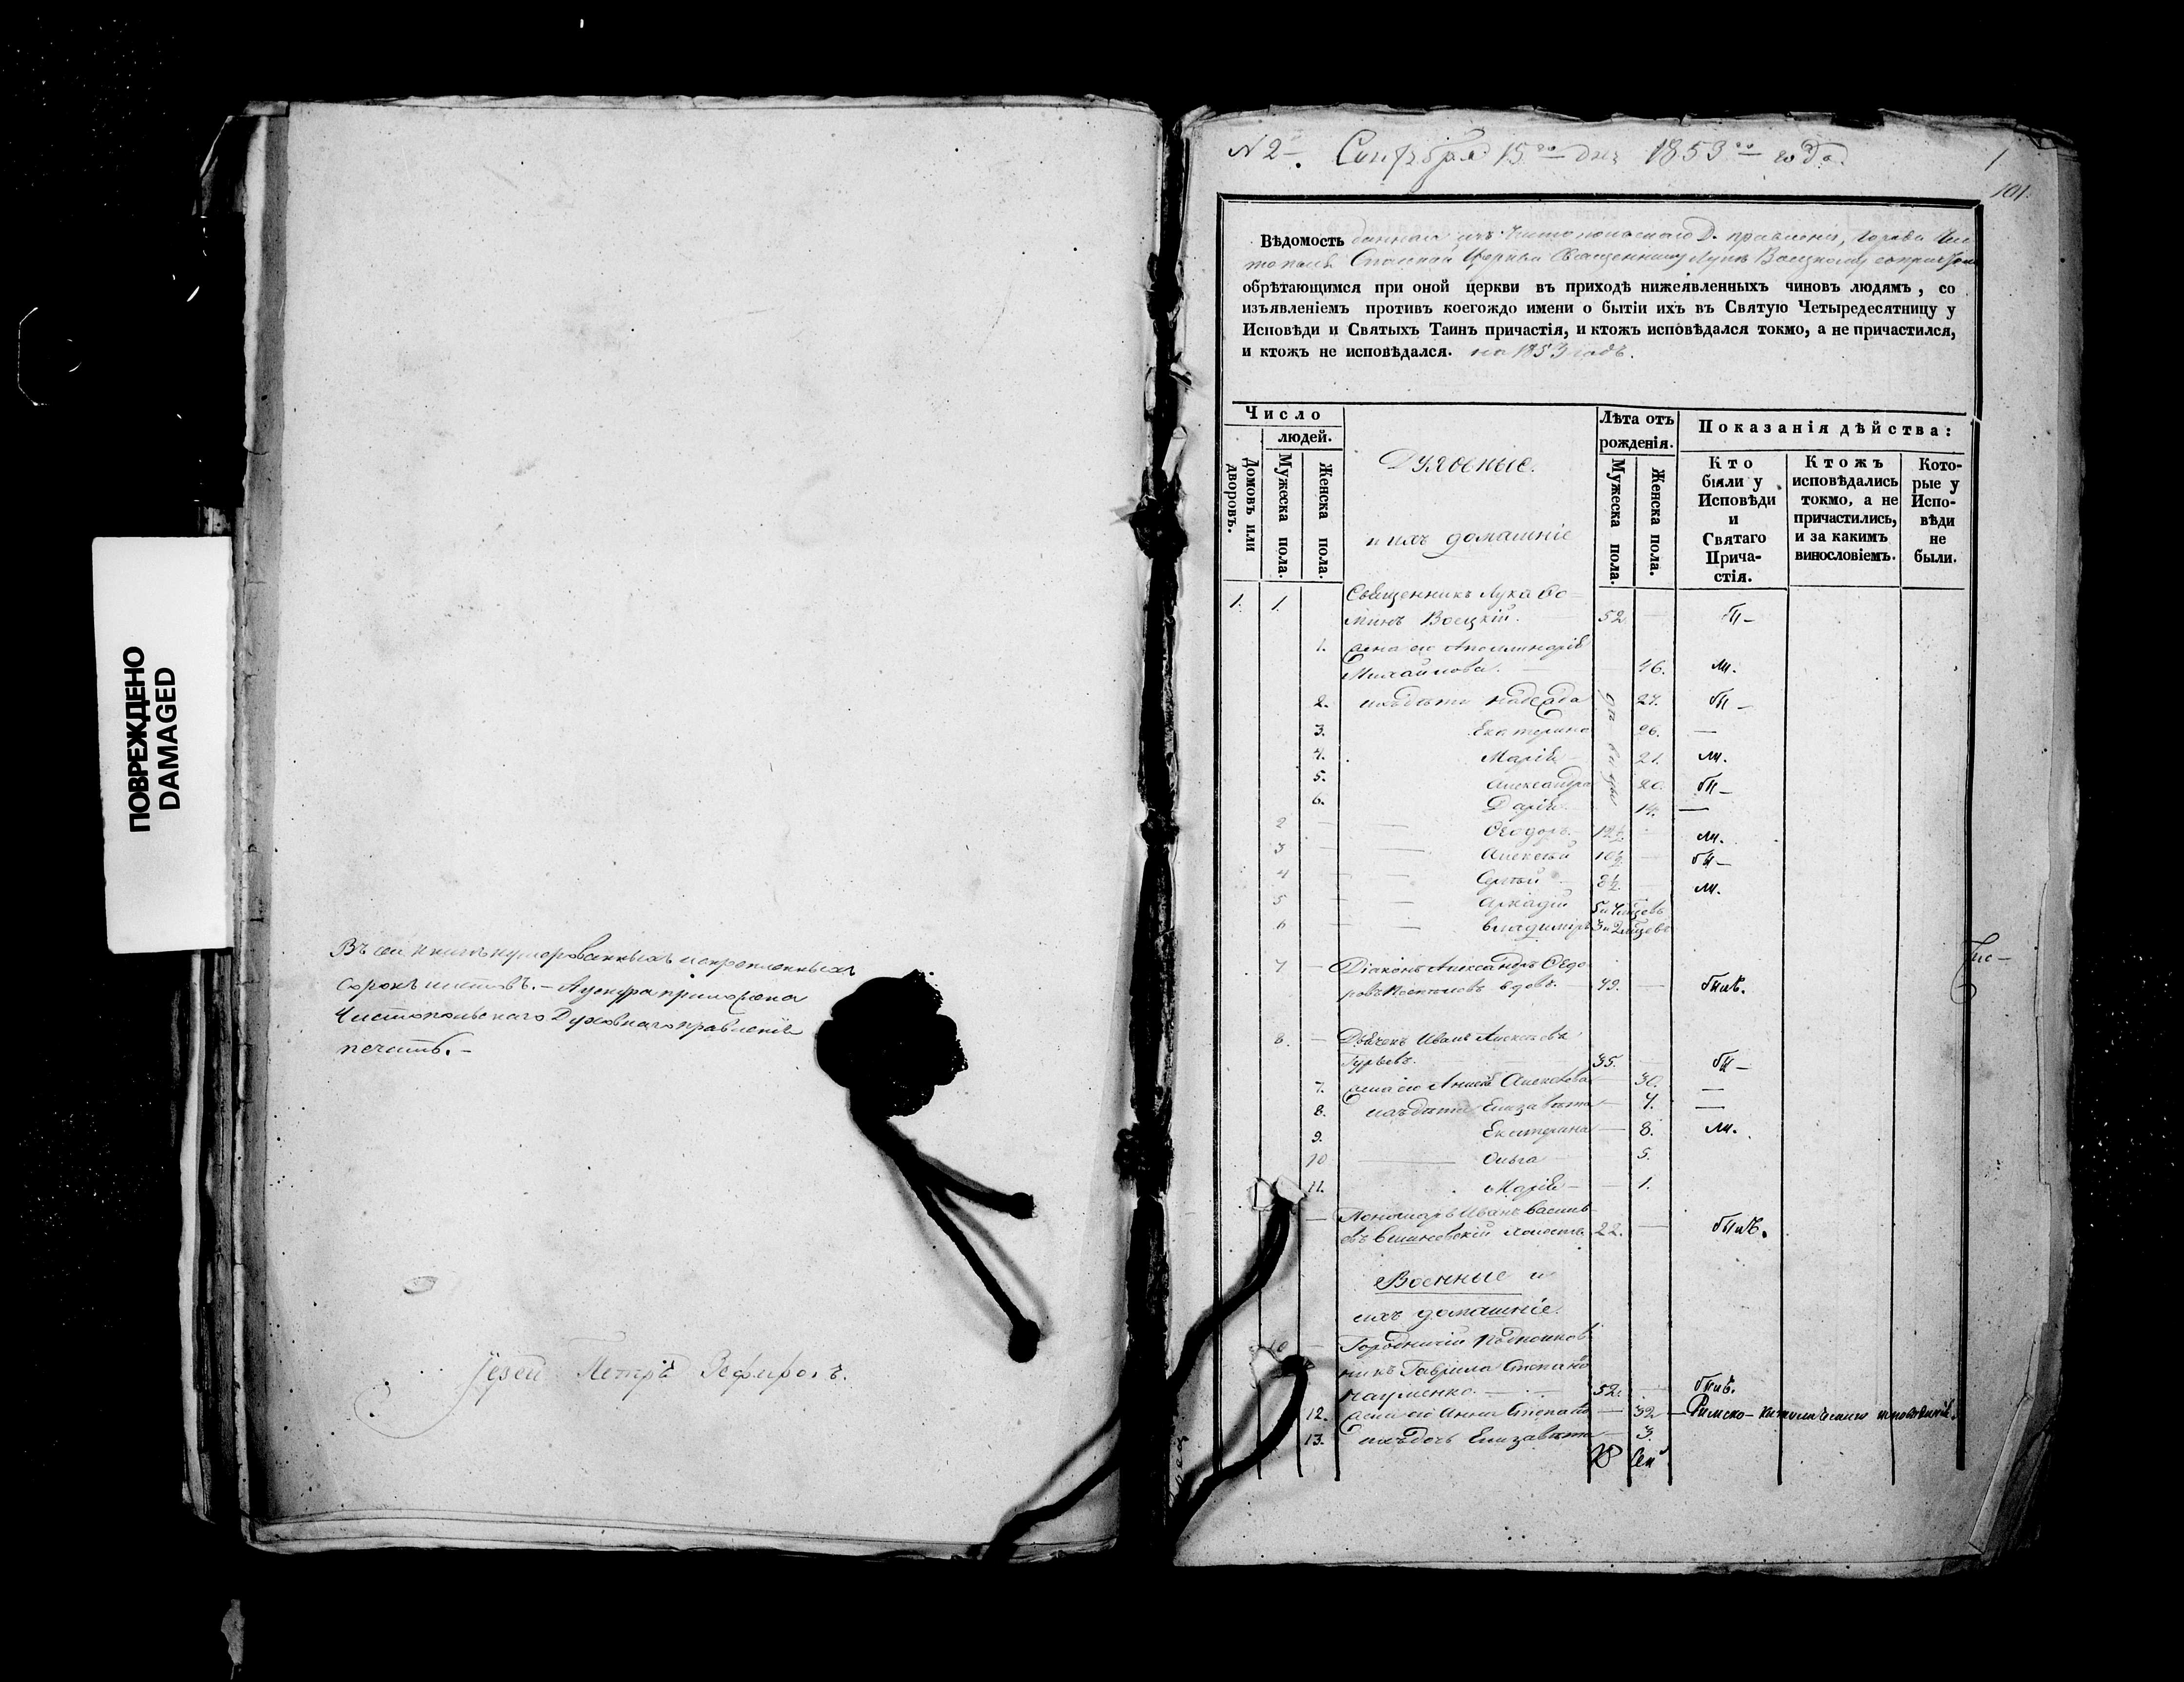 ПОВРЕЖДЕНО
DAMAGED
Въ сей книгѣ нумерованныхъ и скрепленныхъ
сорокъ листовъ. –
Чистопольскаго Духовнаго правленія
печать. –
Іерей Петръ Зефировъ.
N 2. Сентября 15го дня 1853го года.
1
101.
Вѣдомость данная изъ Чистопольскаго Д. правленія, города Чис
тополя Спасской Церкви Священнику Лукѣ Воецкому съ причтомъ
обрѣтающимся при оной церкви въ приходѣ нижеявленныхъ чиновъ людямъ, со
изъявленіемъ противъ коегождо имени о бытіи ихъ въ Святую Четыредесятницу у
Исповѣди и Святыхъ Таинъ причастія, и ктожъ исповѣдался токмо, а не причастился,
и ктожъ не исповѣдался. на 1853 годъ.
Число
людей.
Домовъ или дворовъ.
Мужеска пола.
Женска пола.
Духовные.
и ихъ домашніе
Лѣта отъ
рожденія.
Мужеска пола.
Женска пола.
Показанія дѣйства:
Кто
были у
Исповѣди
и
Святаго
Прича-
стія.
Ктожъ
исповѣдались
токмо, а не
причастились,
и за какимъ
винословіемъ.
Кото-
рые у
Испо-
вѣди
не
были.
1. 1. Священникъ Лука Ѳо
минъ Воецкій. 52. бы –
1. жена его Аполлинарія
Михайлова. 46. ли.
2. ихъ дѣти Надежда 27. бы –
3. Екатерина 26. —
4. Марія 21. ли.
5. Александра 20. бы –
6. Дарія 14. —
2 Ѳеодоръ 12½ ли.
3 Алексѣй 10½ бы –
4 Сергѣй 8½ ли.
5 Аркадій 5 и 4 мѣсяцевъ
6 Владиміръ 3 и 2 мѣсяцевъ
7 Діаконъ Александръ Ѳедо
ровъ вдовъ. 49. былъ.
8. Дьячекъ Иванъ Алексѣевъ
Гурьевъ. 35. бы –
7. жена его Анна Алексѣева 30. —
8. ихъ дѣти Елизавета 4. —
9. Екатерина 8. ли.
10 Ольга 5.
11. Марія 1.
Пономарь Иванъ Василь
евъ холостъ 22. былъ.
Военные и
ихъ домашніе.
10 Городничій Подполков
никъ Гаврила Степано
Науменко. 52. былъ.
12. жена его Анна Степано 32 Римско-католическаго исповѣданія.
13. ихъ дочь Елизавета 3.